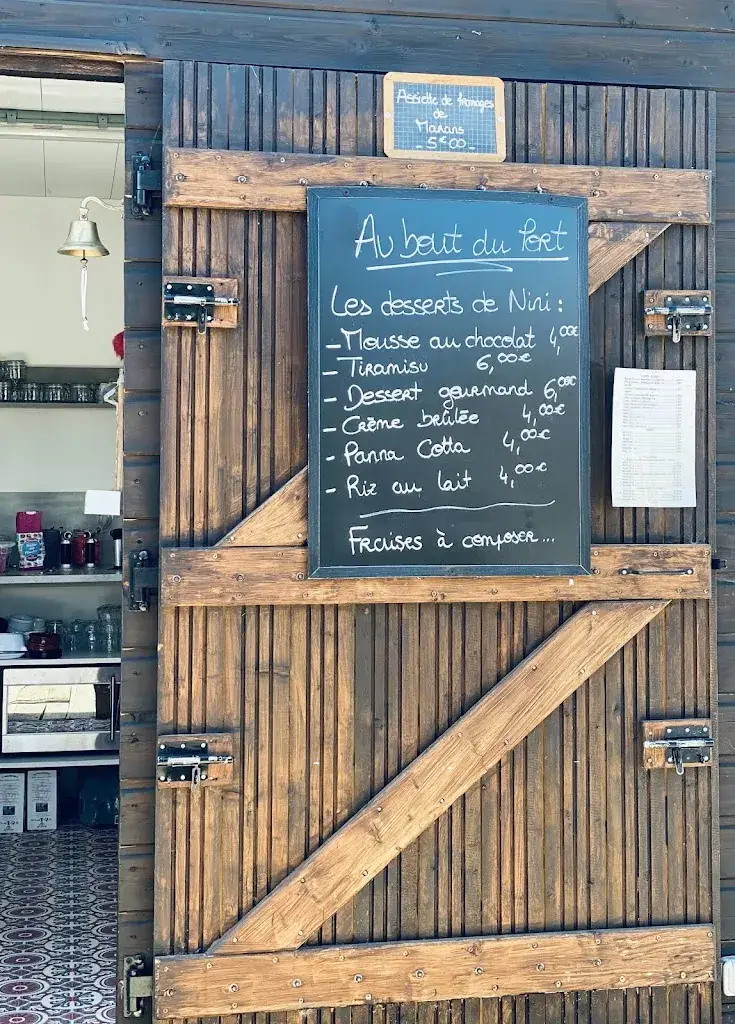 Assiette de fromages
de
Marans
- 5€00 -
Au bout du Port
Les desserts de Nini :
- Mousse au chocolat 4,00€
- Tiramisu 6,00€
- Dessert gourmand 6,00€
- Crème brûlée 4,00€
- Panna Cotta 4,00€
- Riz au lait 4,00€
Fraises à composer...